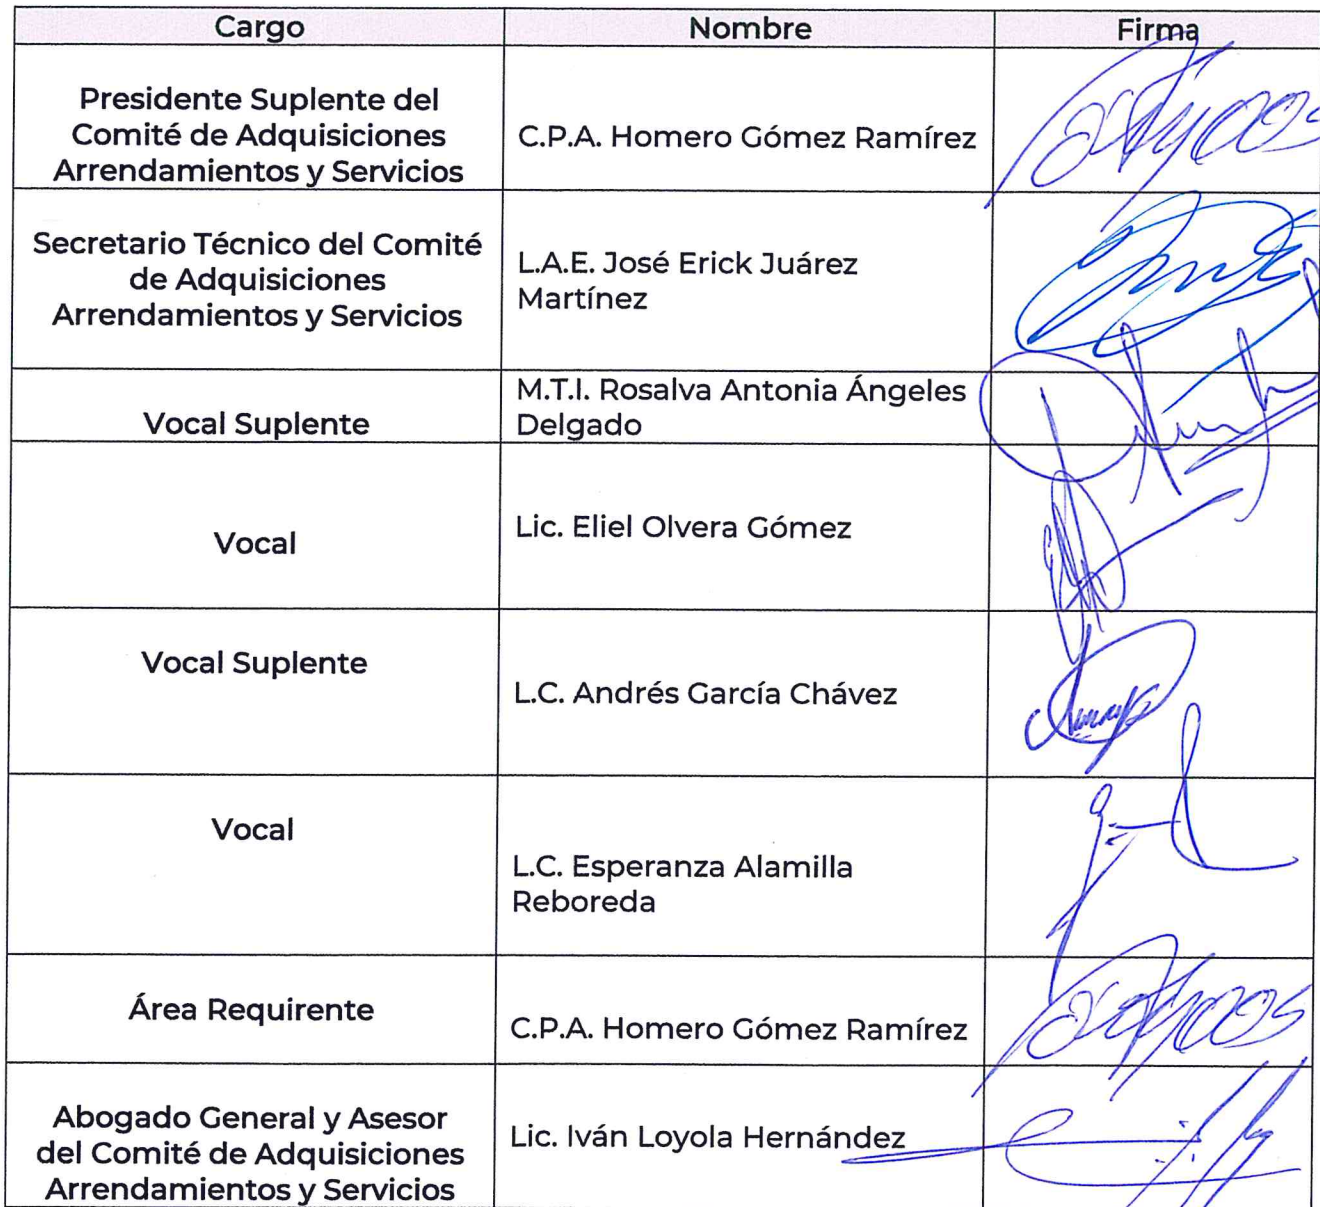 Cargo Nombre Firma
Presidente Suplente del
Comité de Adquisiciones
Arrendamientos y Servicios
C.P.A. Homero Gómez Ramírez
Secretario Técnico del Comité
de Adquisiciones
Arrendamientos y Servicios
L.A.E. José Erick Juárez
Martínez
Vocal Suplente
M.T.I. Rosalva Antonia Ángeles
Delgado
Vocal
Lic. Eliel Olvera Gómez
Vocal Suplente
L.C. Andrés García Chávez
Vocal
L.C. Esperanza Alamilla
Reboreda
Área Requirente
C.P.A. Homero Gómez Ramírez
Abogado General y Asesor
del Comité de Adquisiciones
Arrendamientos y Servicios
Lic. Iván Loyola Hernández